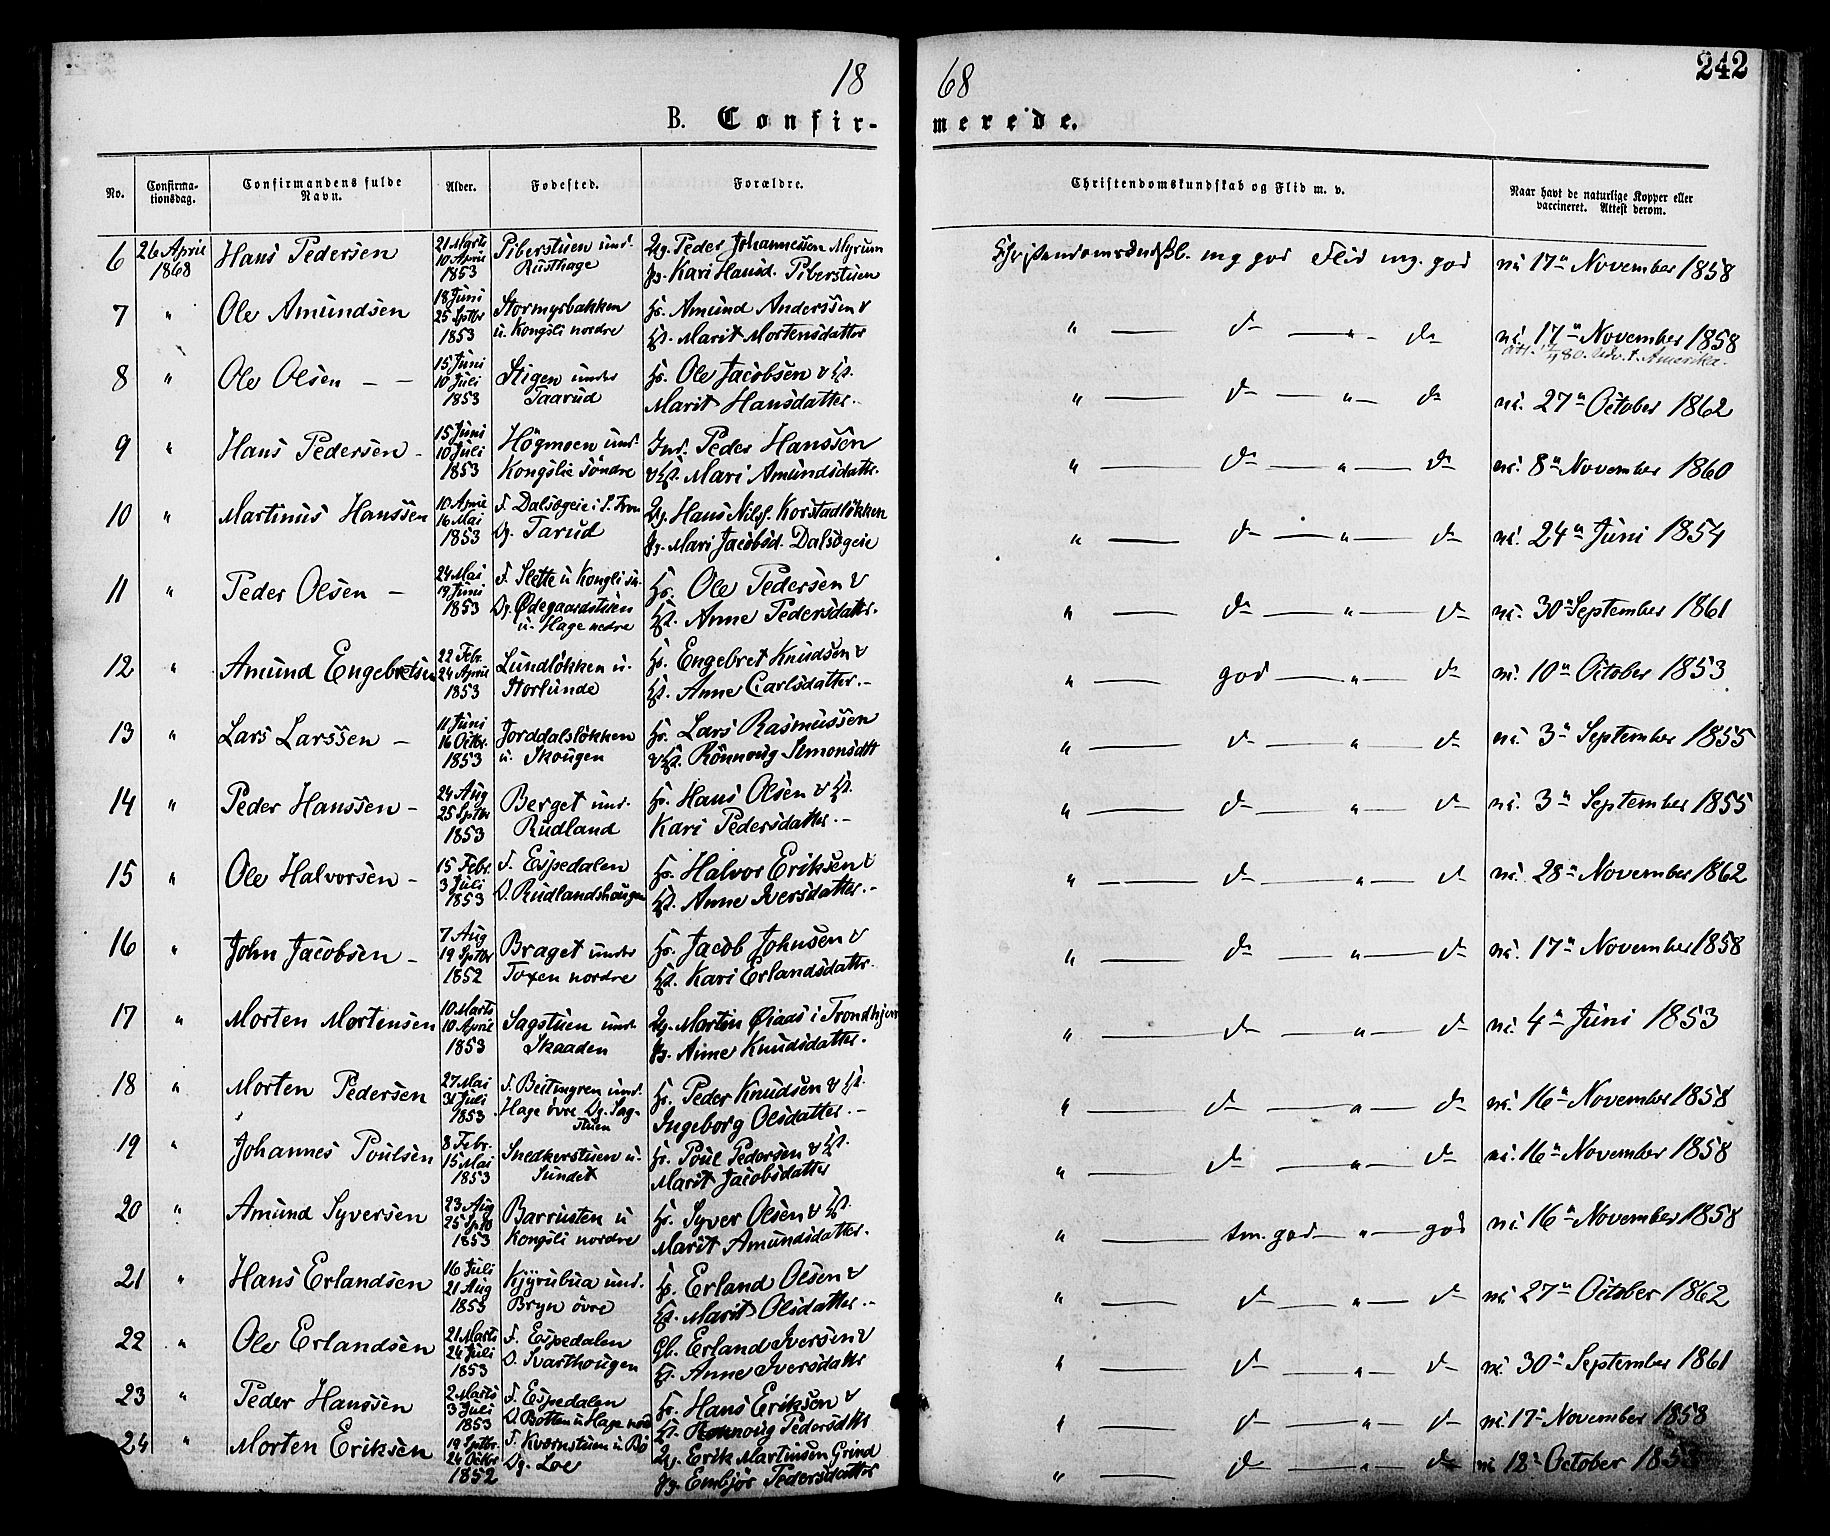 18 68 242
B. Confir- merede.
No. Confirma-tionsdag. Confirmandens fulde Navn. Alder. Fodested. Forældre. Christendomskundskab og Flid m. v. Naar havt de naturlige Kopper eller vaccineret. Attest derom.
6 26 April 1868 Hans Pedersen 21 Marts 10 April 1853 Piberstuen und. Rusthage Ug. Peder Johannessen Myrum Pg. Kari Hansd. Piberstuen mg god Flid mg. god 17 November 1858
7 " Ole Amundsen 18 Juni 25 Sptbr 1853 Stormyrbakken u. Kongsli nordre Hs. Amund Anderssen & Marit Mortensdatter " d " d 17 November 1858
Att. 80. Udv. t. Amerika.
8 " Ole Olsen - - 15 Juni 10 Juli 1853 Stigen under Taarud Hs. Ole Jacobsen & Marit Hansdatter. " d " d 27 October 1862
9 " Hans Pedersen - 15 Juni 10 Juli 1853 Högmoen und. Kongslie söndre Ind. Peder Hanssen & Mari Amundsdatter. " d " d 8 November 1860
10 " Martinus Hanssen 10 April 16 Mai 1853 F. Dalsögeie i S. Fron Dg. Tarud Ug. Hans Nilss. Korstadlökken Pg. Mari Jacobsd. Dalsögeie " d " d 24 Juni 1854
11 " Peder Olsen - 24 Mai 19 Juni 1853 F. Slette u Kongli sn. Dg. Ødegaardstuen u. Hage nedre Hs. Ole Pedersen & Anne Pedersdatter. " d " d 30 September 1861
12 " Amund Engebretsen 22 Febr. 24 April 1853 Lundlökken u. Storlunde Hs. Engebret Knudsen & Anne Carlsdatter. " god " d 10 October 1853
13 " Lars Larssen - 11 Juni 16 Octbr. 1853 Jorddalslökken u. Skougen Hs. Lars Rasmussen & Rönnoug Simonsdtt " d " d 3 September 1855
14 " Peder Hanssen - 24 Aug 25 Sptbr 1853 Berget und. Rudland Hs. Hans Olsen & Kari Pedersdatter. " d " d 3 September 1855
15 " Ole Halvorsen - 15 Febr. 3 Juli 1853 F. Espedalen D. Rudlandshaugen Hs. Halvor Eriksen & Anne Iversdatter. " d " d 28 November 1862
16 " John Jacobsen - 7 Aug 19 Sptbr 1852 Braget under Toxen nordre Hs. Jacob Johnsen & Kari Erlandsdatter. " d " d 17 November 1858
17 " Morten Mortensen 10 Marts 10 April 1853 Sagstuen und. Skaaden Ug. Martin Øiaas i Trondhjem Pg. Anne Knudsdatter. " d " d 4 Juni 1853
18 " Morten Pedersen 27 Mai 31 Juli 1853 F. Beitmyren und. Hage övre Dg. Sagstuen Hs. Peder Knudsen & Ingeborg Olsdatter. " d " d 16 November 1858
19 " Johannes Poulsen 8 Febr. 15 Mai 1853 Snedkerstuen u. Sundet Hs. Poul Pedersen & Marit Jacobsdatter " d " d 16 November 1858
20 " Amund Syversen 23 Aug 25 Sptb 1853 Barrusten u Kongsli nordre Hs. Syver Olsen & Marit Amundsdatter. " tm. god " god 16 November 1858
21 " Hans Erlandsen 16 Juli 21 Aug 1853 Kjyrubua und. Bryn övre Hs. Erland Olsen & Marit Olsdatter. " d " d 27 October 1862
22 " Ole Erlandsen 21 Marts 24 Juli 1853 F. Espedalen D. Svarthougen Gb. Erland Iversen & Anne Iversdatter " d " d 30 September 1861
23 " Peder Hanssen 2 Marts 3 Juli 1853 F. Espedalen D. Botten u Hage nord Hs. Hans Eriksen & Rönnoug Pedersdtt " d " d 17 November 1858
24 " Morten Eriksen 19 Sptbr. 24 Octbr 1852 F. Kværnstuen u. Bö Dg. Loe Ug. Erik Martinsen Grind Pg. Embjör Pedersdatter " d " d 12 October 1853